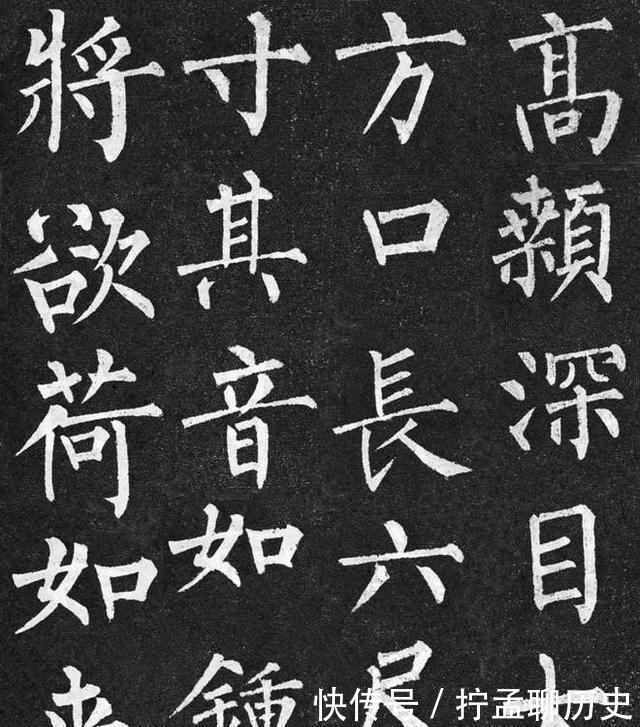 高顙深目
方口長六尺
寸其音如鍾
將欲荷如来
快传号 / 拧孟聊历史